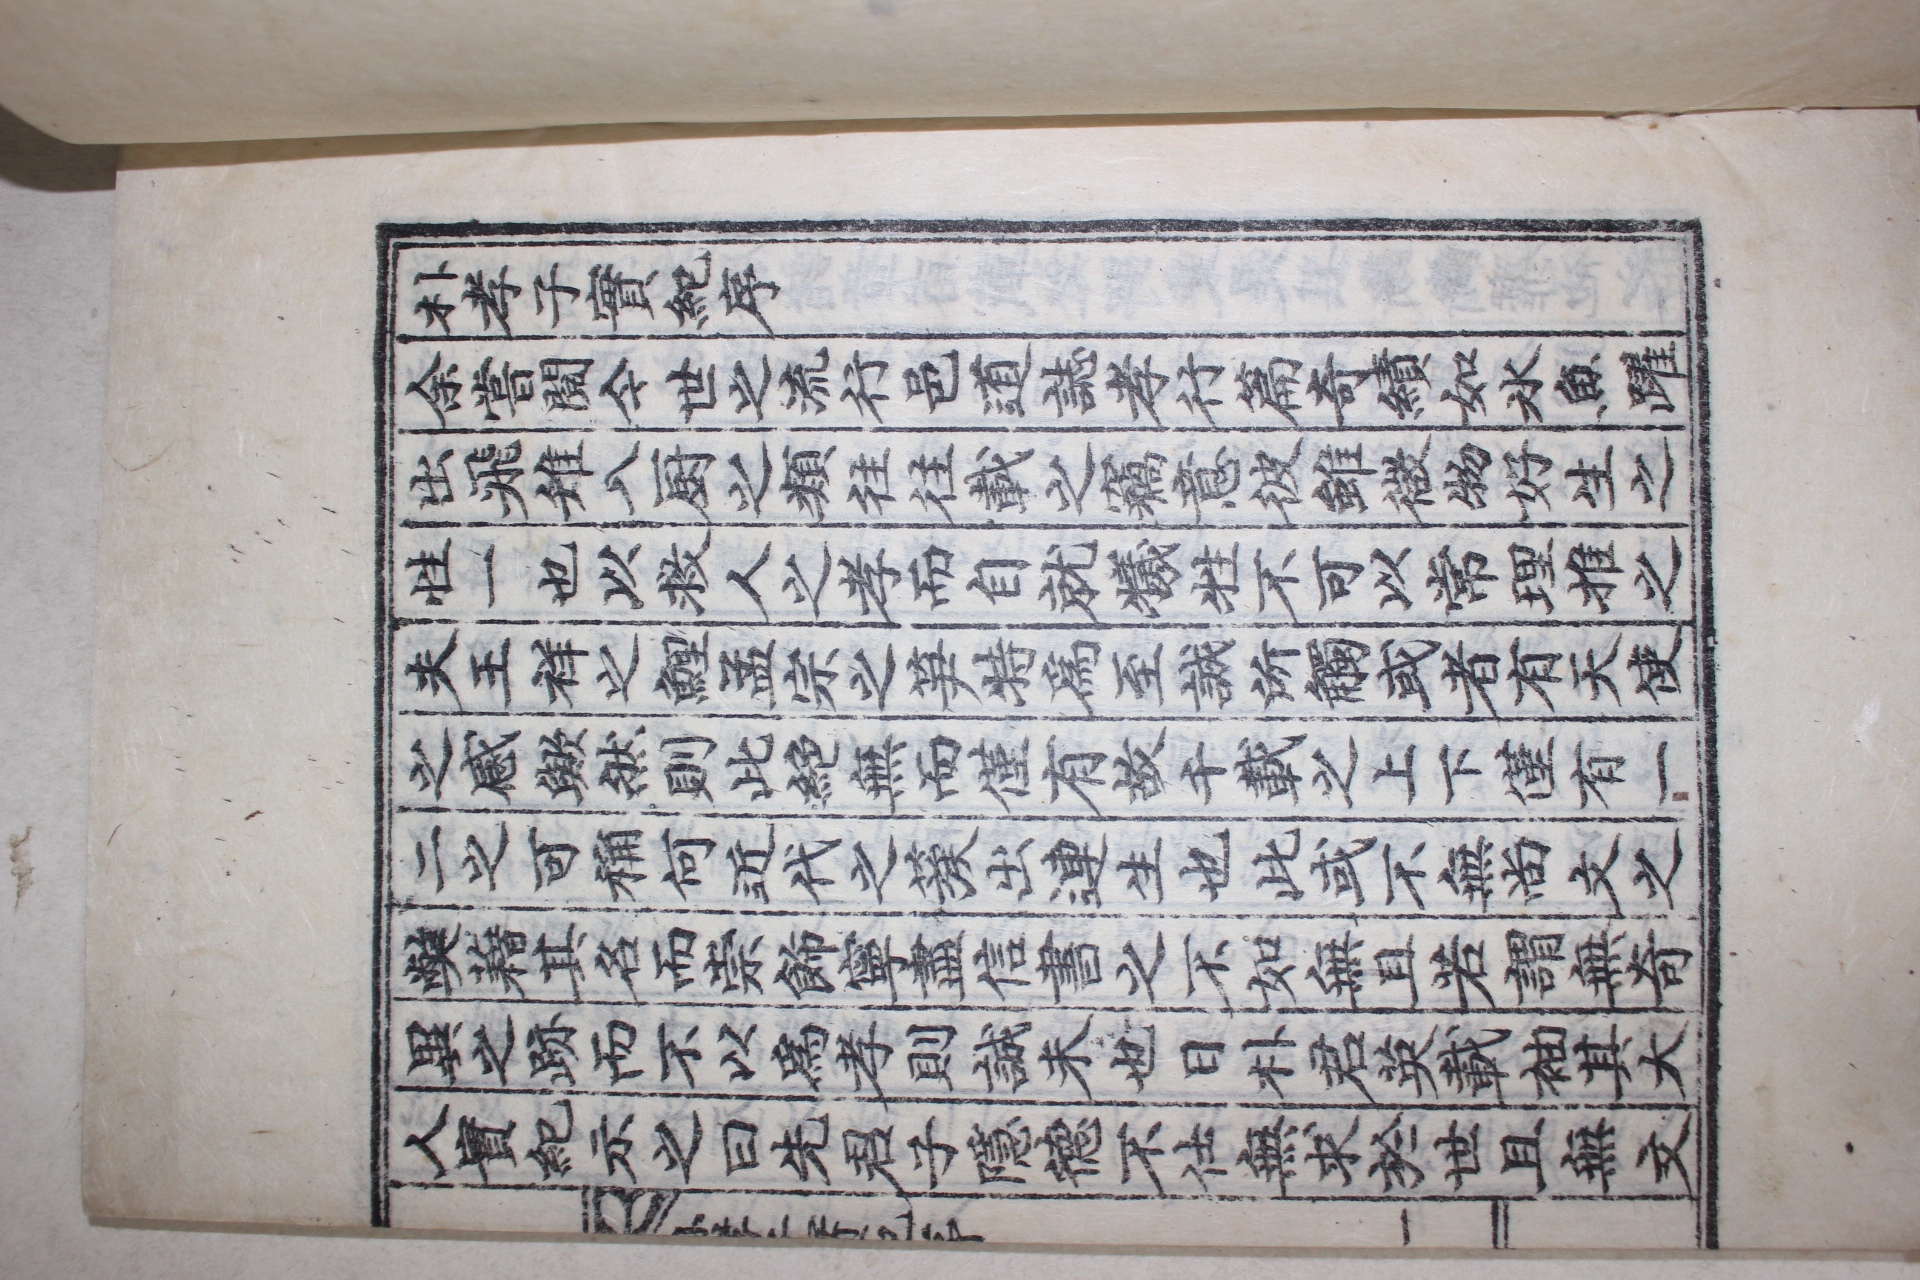 朴孝子實紀序
余嘗閱今世之流行邑道誌孝行篇奇績如氷魚躍
出飛雉入厨之類往往載之竊意彼雖微物好生之
性一也以救人之孝而自就犧牲不可以常理推之
夫王祥之鯉孟宗之笋特爲至誠所觸或者有天使
之感歟然則此絶無而僅有故千載之上下僅有一
二之可稱何近代之葵出逮生也此或不無沽文之
弊藉其名而崇餙寧盡信書之不如無且若謂無奇
異之跡而不以爲孝則誠未也日朴君英載袖其大
人實紀示之曰先君子隱德不仕無求於世且無文
一